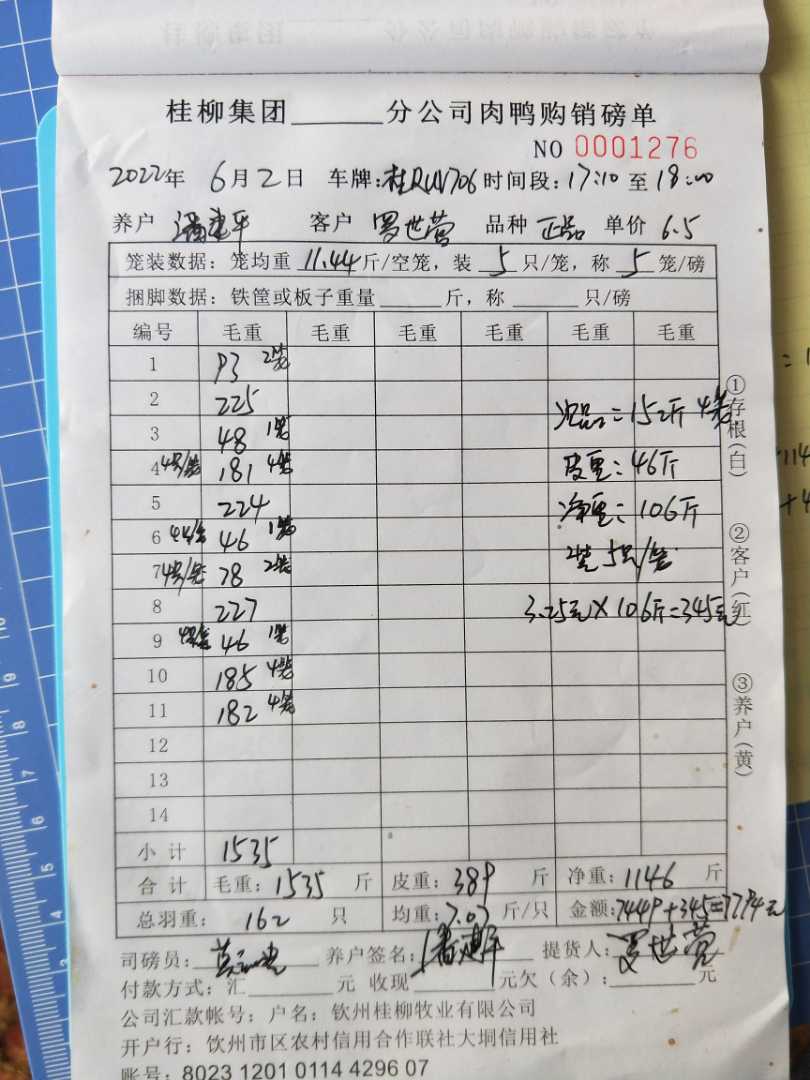 桂柳集团______分公司肉鸭购销磅单
NO 0001276
2022年 6月2日 车牌:桂RUV706 时间段:17:10 至 18:00
养户 潘建平 客户 罗世营 品种 正品 单价 6.5
笼装数据: 笼均重 11.44 斤/空笼, 装 5 只/笼, 称 5 笼/磅
捆脚数据: 铁筐或板子重量______斤, 称______只/磅
编号 毛重 毛重 毛重 毛重 毛重 毛重
1 93 2笼
2 225
3 48 1笼
4 4只/笼 181 4笼
5 224
6 46 1笼
7 4只/笼 78 2笼
8 227
9 46 1笼
10 185 4笼
11 182 4笼
12
13
14
次品=152斤 4笼
皮重:46斤
净重=106斤
5只/笼
3.25元×106斤=345元
小计 1535
合计 毛重:1535 斤 皮重:389 斤 净重:1146 斤
总羽重: 162 只 均重:7.07 斤/只 金额:7449+345=7794元
司磅员: 养户签名:潘建平 提货人:罗世营
付款方式: 汇______元 收现______元欠(余):______元
公司汇款帐号: 户名: 钦州桂柳牧业有限公司
开户行: 钦州市区农村信用合作联社大垌信用社
账号: 8023 1201 0114 4296 07
①存根(白)
②客户(红)
③养户(黄)